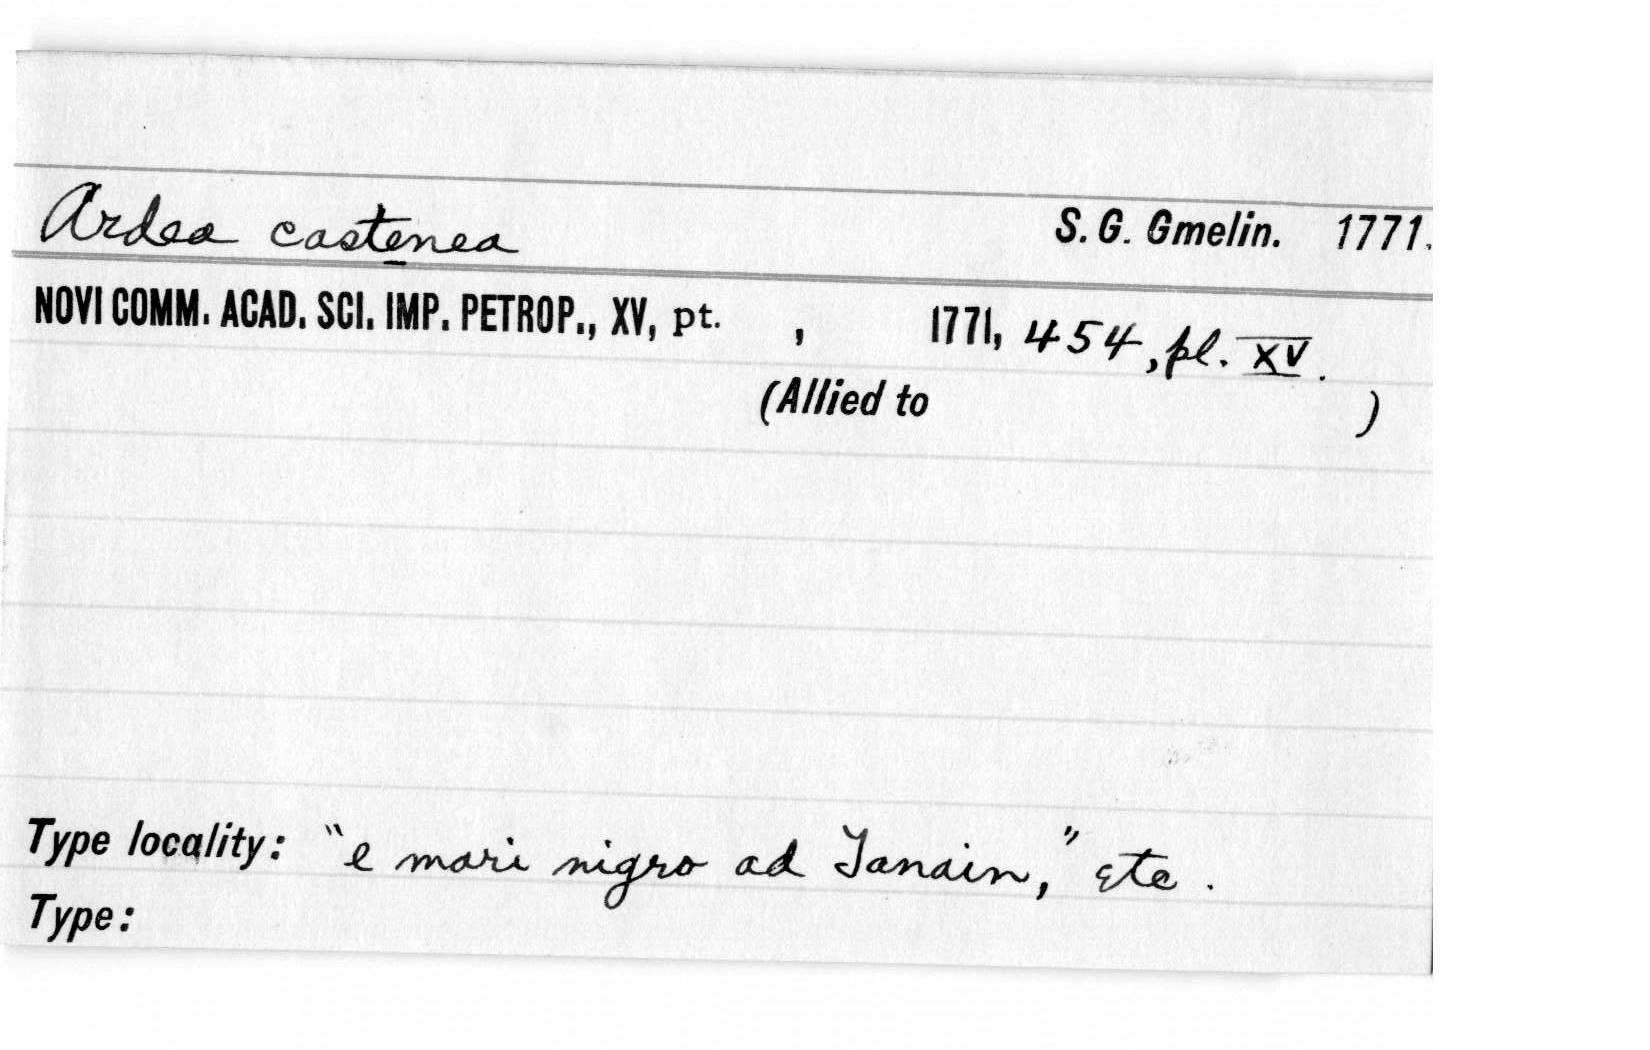 Ardea castenea S. G. Gmelin. 1771.
NOVI COMM. ACAD. SCI. IMP. PETROP., XV, pt. , 1771, 454, pl. XV.
(Allied to )
Type locality: "e mari nigro ad Tanain," etc.
Type: